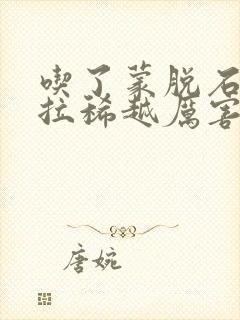 喫了蒙脱石
拉稀越厲害
唐婉